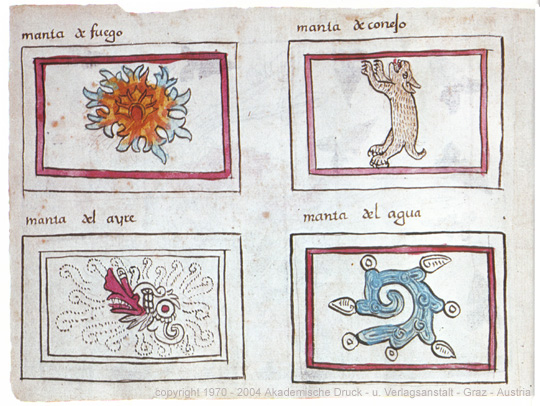 manta de fuego
manta de conejo
manta del ayre
manta del agua
copyright 1970 - 2004 Akademische Druck - u. Verlagsanstalt - Graz - Austria